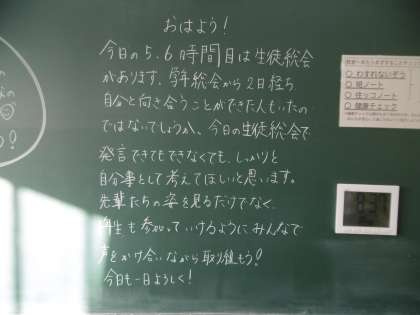 おはよう!
今日の5.6時間目は生徒総会
があります。学年総会から2日経ち
自分と向き合うことができた人もいたの
ではないでしょうか、今日の生徒総会で
発言できてもできなくても、しっかりと
自分事として考えてほしいと思います。
先輩たちの姿を見るだけでなく、
年生も参加っていけるようにみんなで
声をかけ合いながら取り組もう!
今日も一日よろしく!
○ わすれないぞう
○ 短ノート
○ 健康チェック